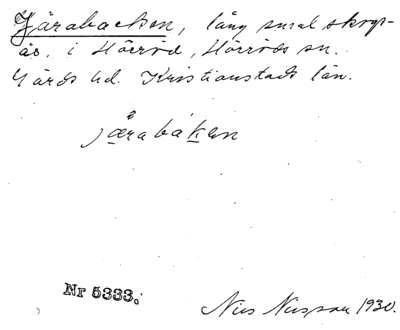 Järabacken, lång smal skogs-
ås, i Hörröd, Hörröds sn.
Gärds hd. Kristianstads län.
järabáken
Nr 5333.
Nils Nilsson 1930.